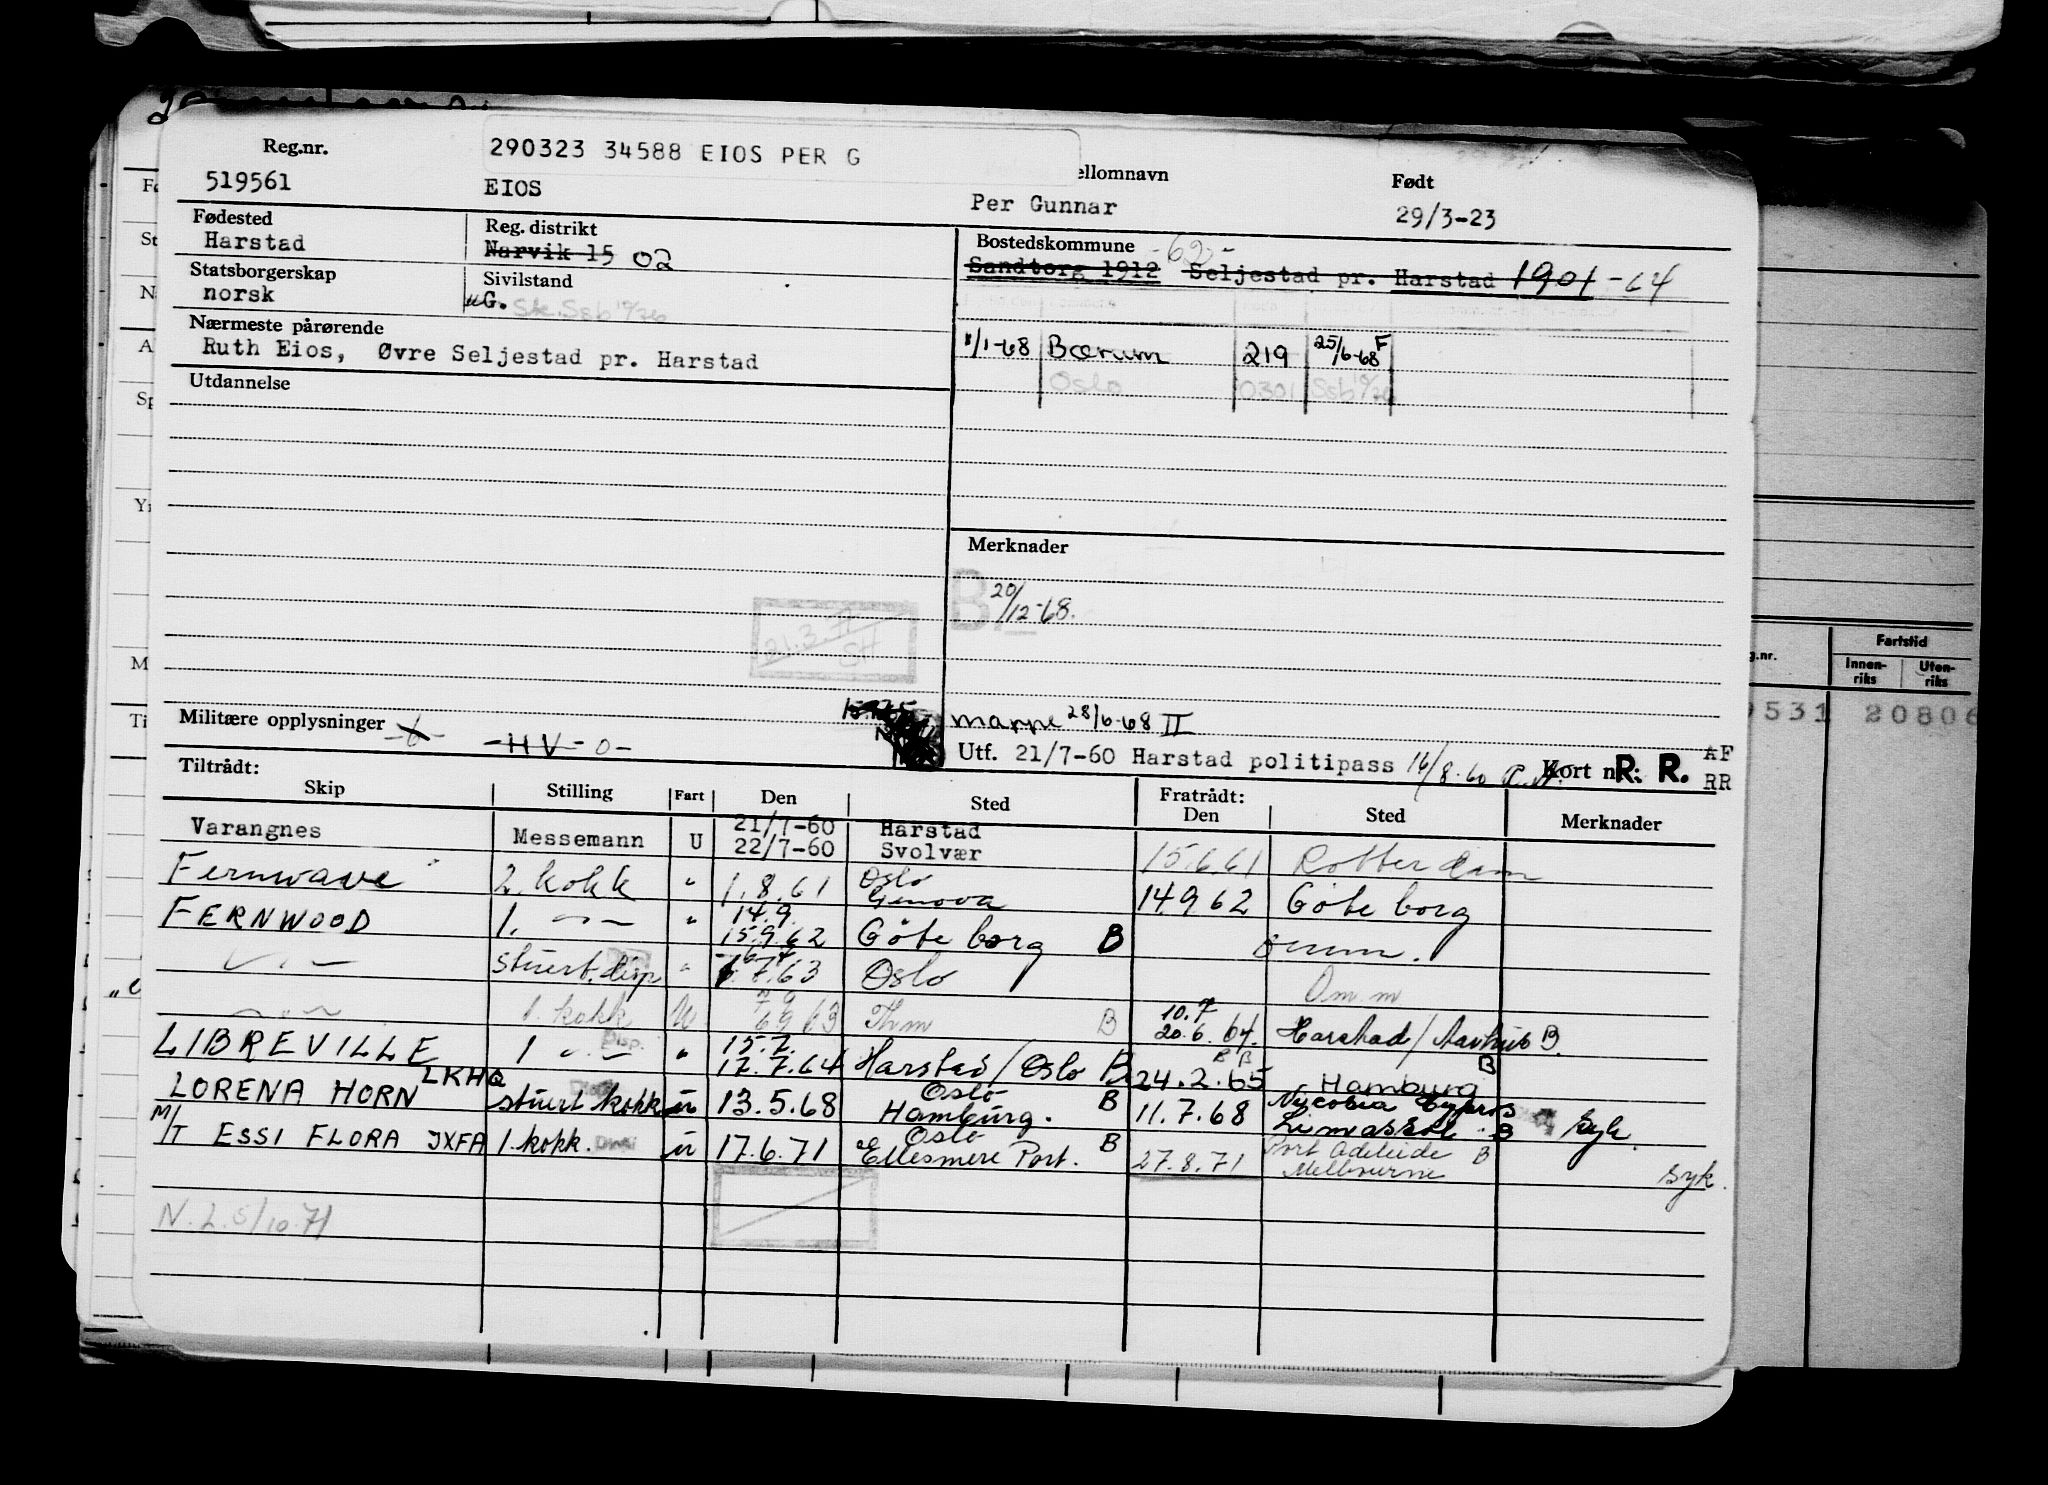 Reg.nr.
290323 34588 EIOS PER G
ellomnavn
Født
519561
EIOS
Per Gunnar
29/3-23
Fødested
Harstad
Reg. distrikt
Narvik 15 02
Bostedskommune -62-
Sandtorg 1912 Seljestad pr. Harstad 1901 -64
Statsborgerskap
norsk
Sivilstand
G.
Nærmeste pårørende
Ruth Eios, Øvre Seljestad pr. Harstad
1/1-68 Bærum 219 25/6-68 F
Oslo 0301
Utdannelse
Merknader
B 20/12-68.
21.3.
Militære opplysninger
-HV-0-
mappe 28/6-68 II
Utf. 21/7-60 Harstad politipass 16/8-60
Kort nr: R. R.
AF
RR
Tiltrådt:
Skip Stilling Fart Den Sted Fratrådt: Den Sted Merknader
Varangnes Messemann U 21/7-60 Harstad
22/7-60 Svolvær 15.6.61 Rotterdam
Fernwave 2. kokk " 1.8.61 Oslo Genova 14.9.62 Göteborg
FERNWOOD 1. -"- " 14.9. 15.9.62 Göteborg B
-"- stuert. disp " 7.63 Oslo
-"- 1. kokk U 63 B 10.7 20.6.64 Harstad/Aarhus B.
LIBREVILLE 1 -"- Disp. " 15.7. 17.7.64 Harstad/Oslo B 24.2.65 Hamburg B
LORENA HORN LKHQ stuert kokk u 13.5.68 Oslo Hamburg. B 11.7.68 Nicosia Cypros Limassol B syk.
M/T ESSI FLORA JXFA 1. kokk. u 17.6.71 Oslo Ellesmere Port. B 27.8.71 Port Adeleide Melbourne B syk.
N.L. 5/10-71
g.nr.
Fartstid
Innen-riks
Uten-riks
9531 20806